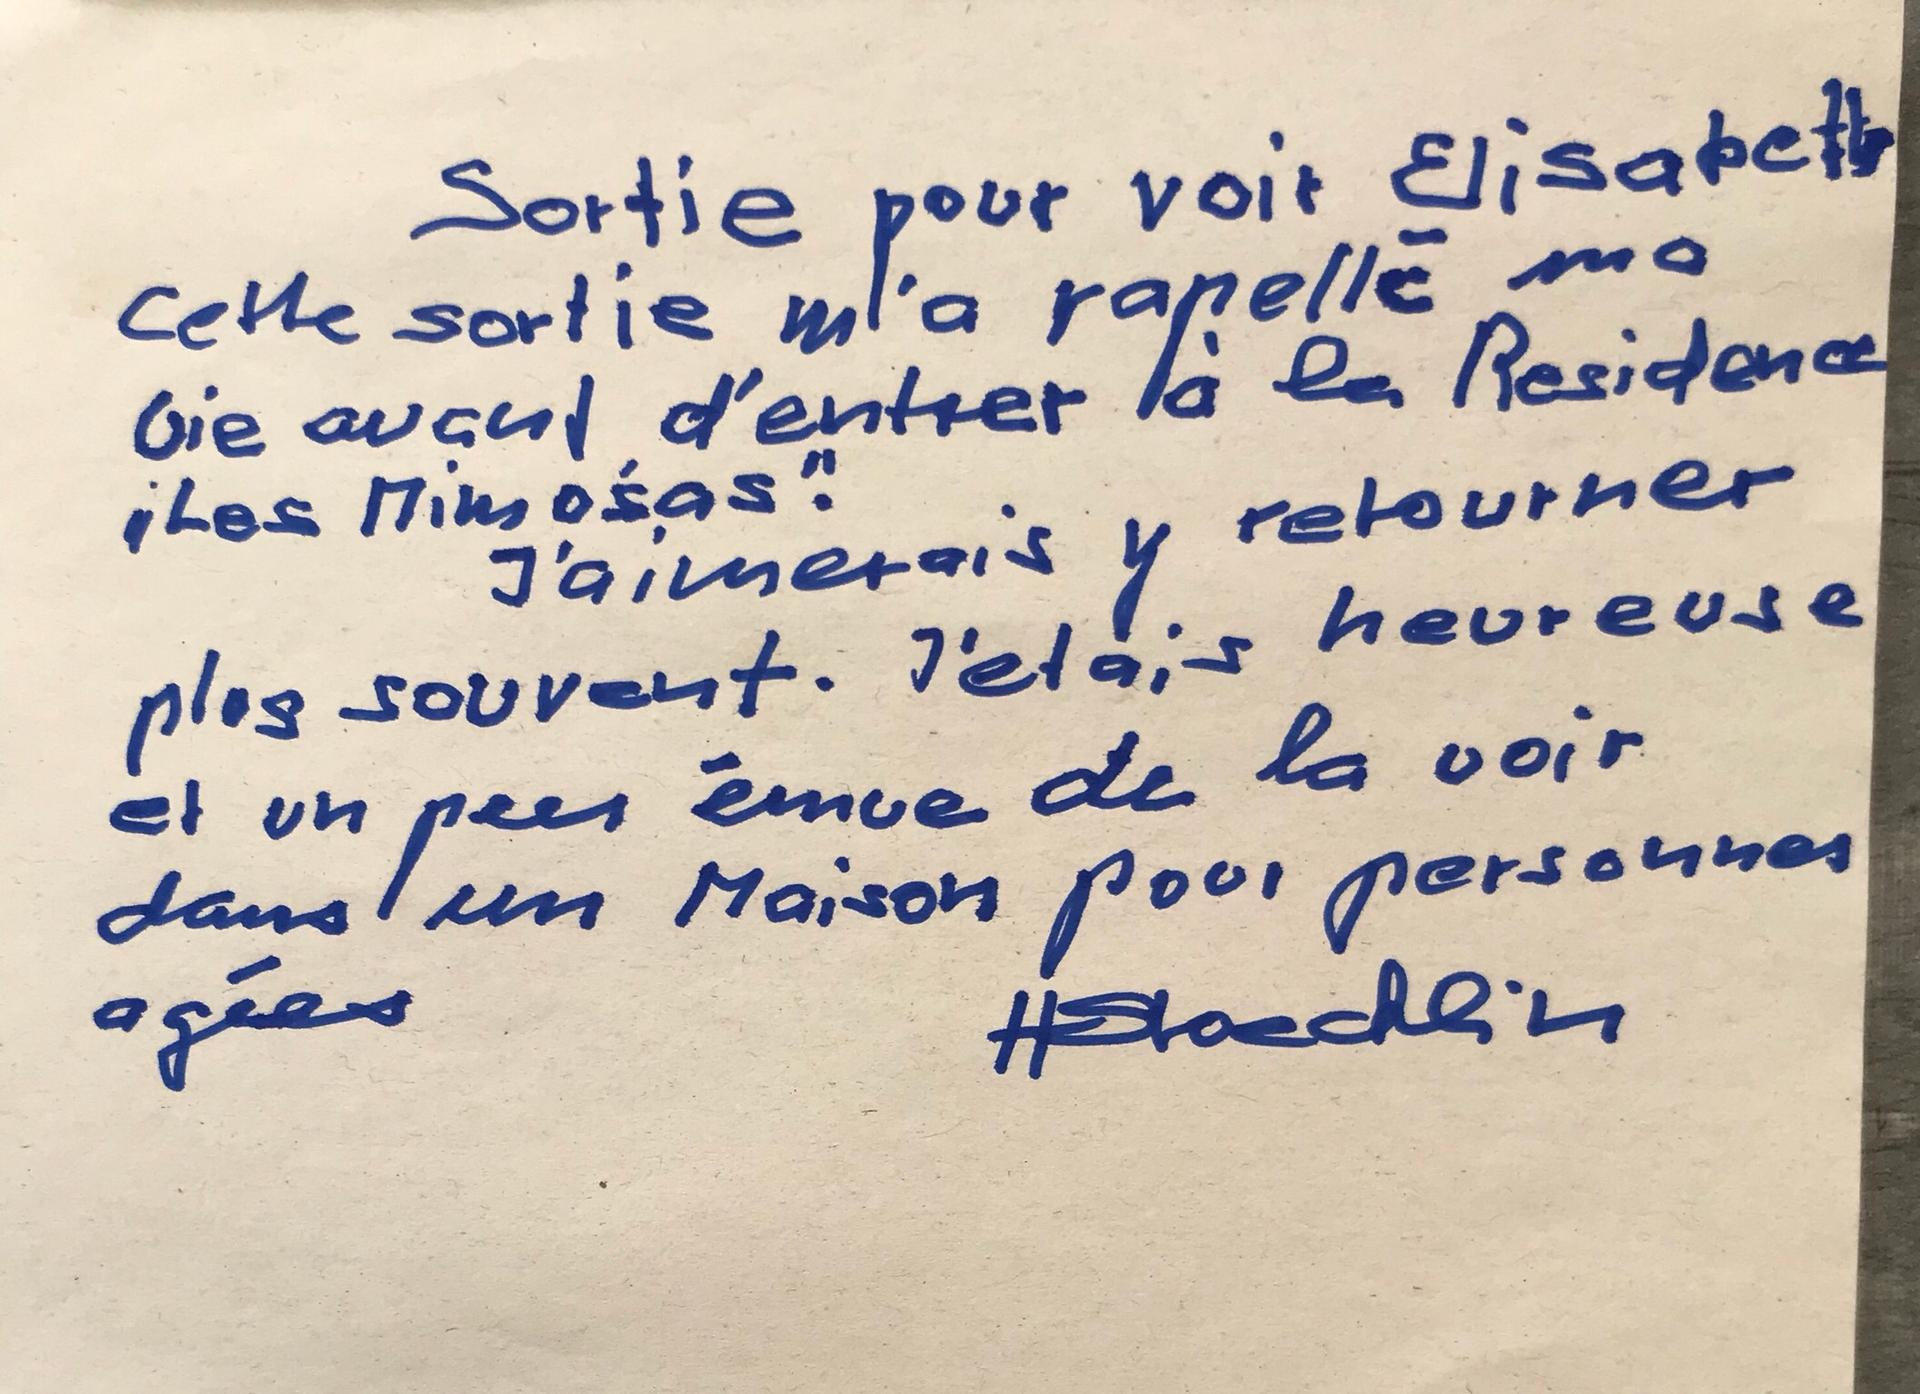 Sortie pour voir Elisabeth
Cette sortie m'a rapellé ma
vie avant d'entrer à la Residence
"Les Mimosas".
J'aimerais y retourner
plus souvent. J'etais heureuse
et un peu émue de la voir
dans un Maison pour personnes
agées
HStoecklin